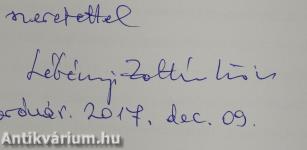 szeretettel
Lébényi Zoltán
2017. dec. 09.
Antikvárium.hu